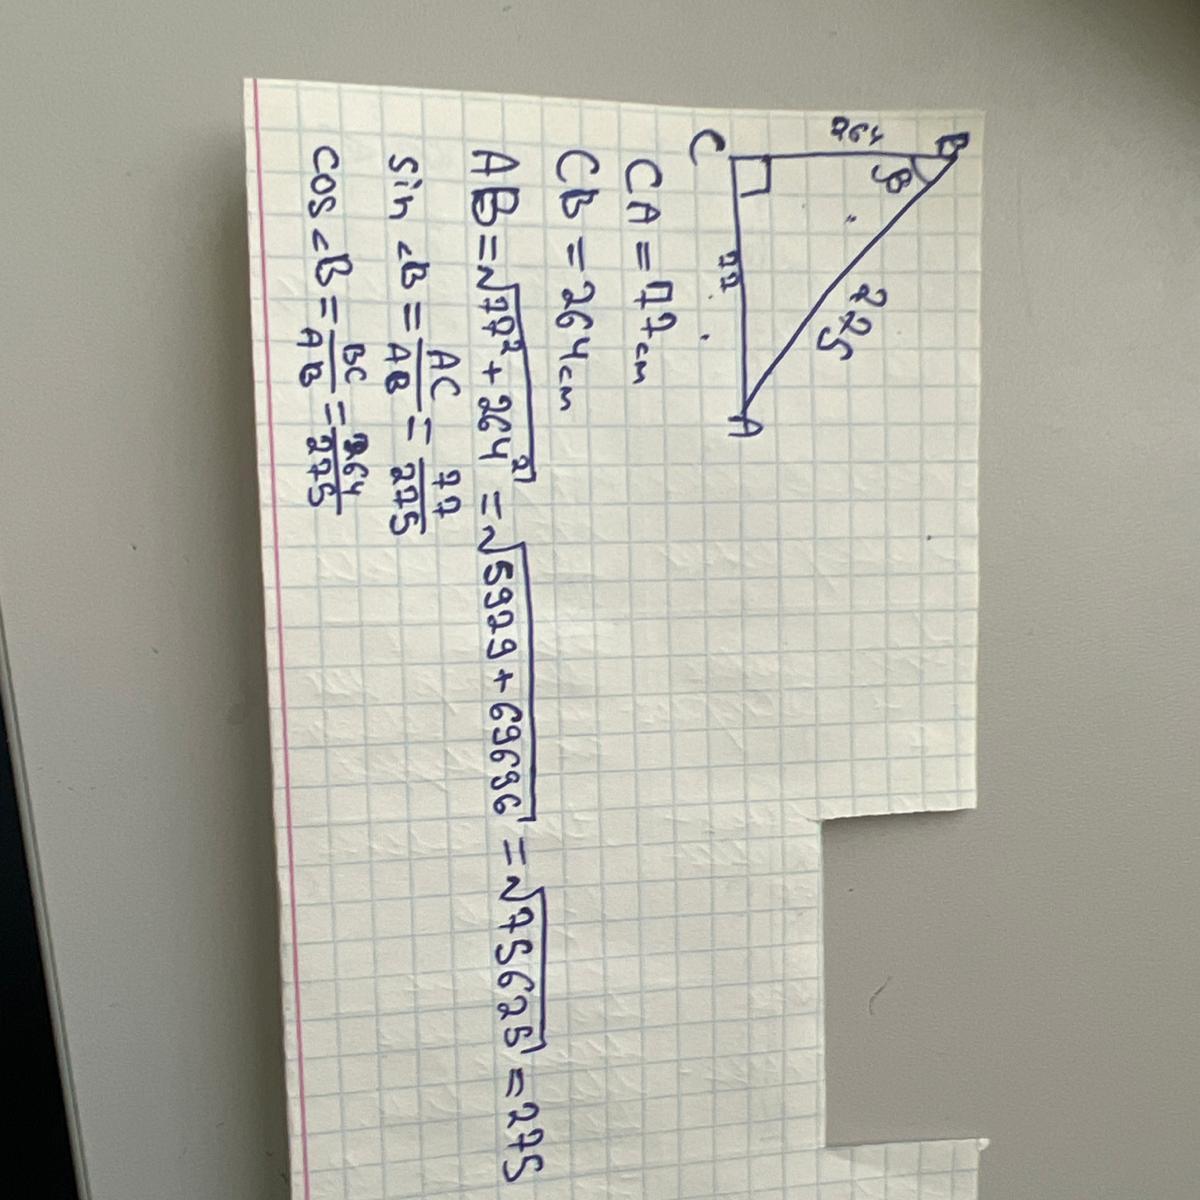 B
264
β
275
77
C
A
CA = 77cm
CB = 264cm
AB = √77² + 264² = √5929 + 69696 = √75625 = 275
sin <B = AC/AB = 77/275
cos <B = BC/AB = 264/275